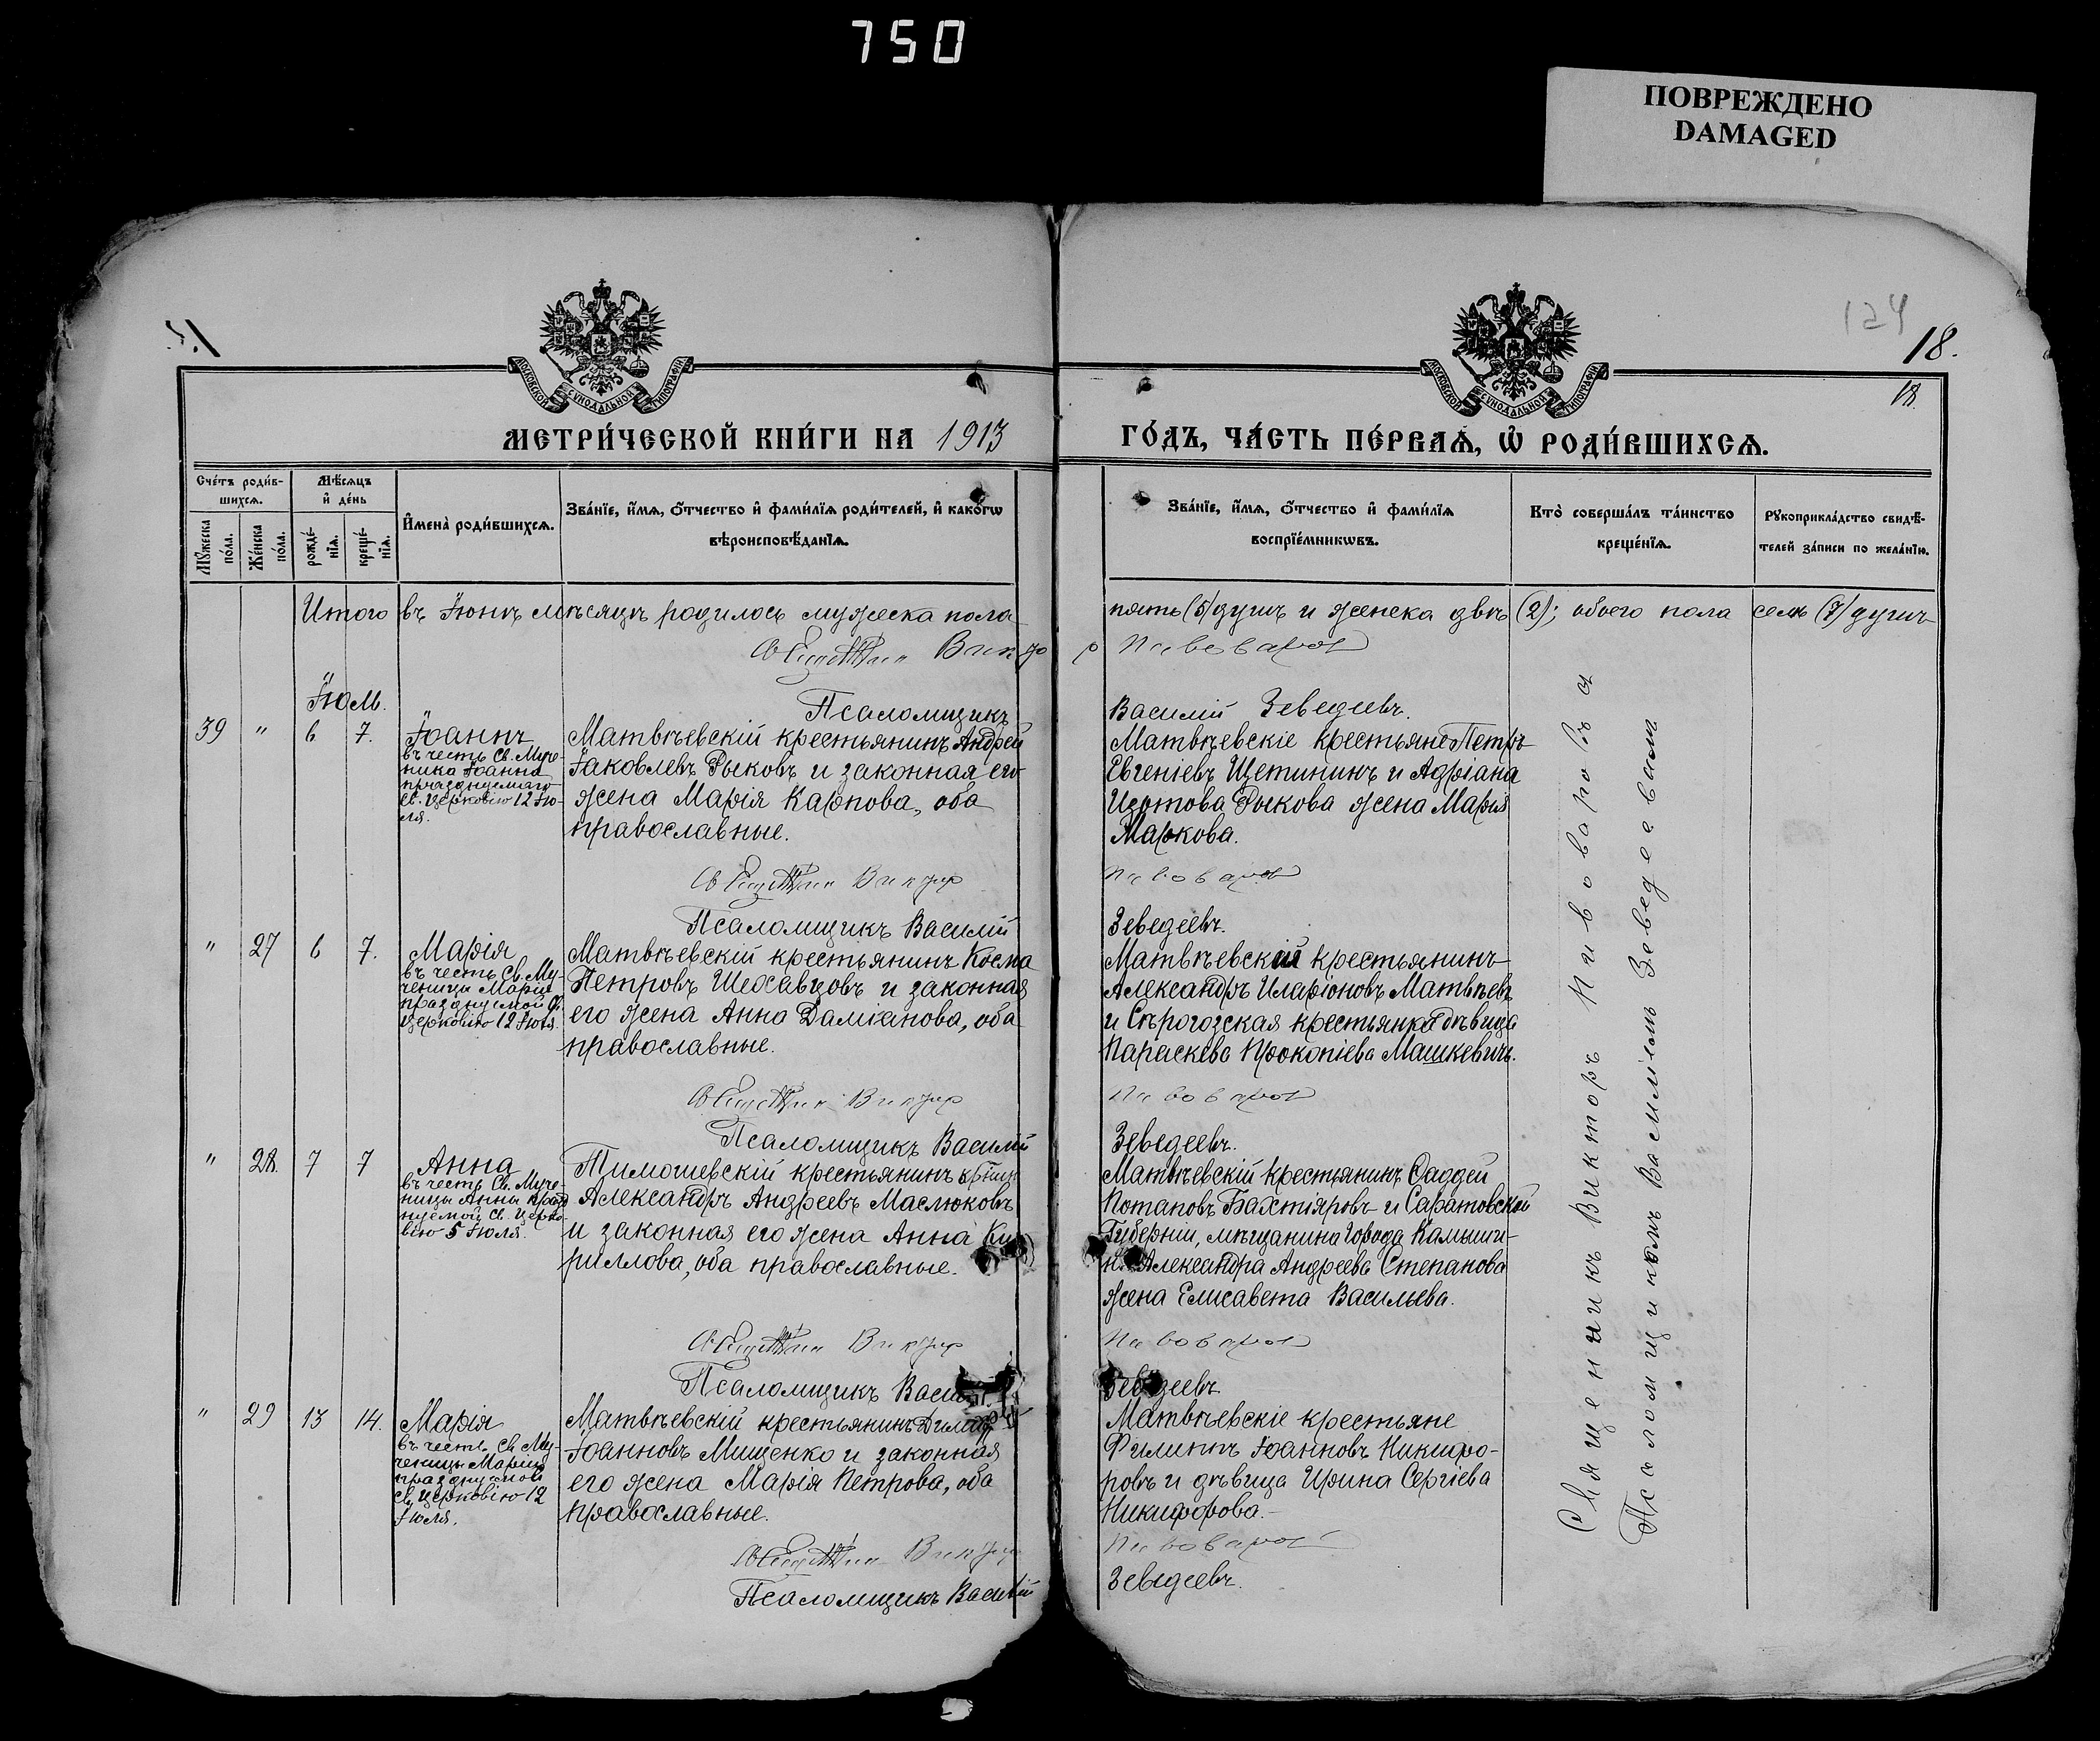 750
ПОВРЕЖДЕНО
DAMAGED
124
18.
18.
МОСКОВСКОЙ СУНОДАЛЬНОЙ ТИПОГРАФІИ
МОСКОВСКОЙ СУНОДАЛЬНОЙ ТИПОГРАФІИ
МЕТРИ́ЧЕСКОЙ КНИ́ГИ НА 1913
ГО́ДЪ, ЧА́СТЬ ПЕ́РВАѦ, Ѡ҆ РОДИ́ВШИХСѦ.
Сче́тъ роди́в-
шихсѧ.
Мѣ́сѧцъ
и҆ де́нь
Мꙋ́жеска
по́ла.
Же́нска
по́ла.
рожде́-
нїѧ.
креще́-
нїѧ.
И҆мена̀ роди́вшихсѧ.
Зва́нїе, и҆́мѧ, ѻ҆́тчество и҆ фами́лїѧ роди́телей, и҆ како́гѡ
вѣроисповѣ́данїѧ.
Зва́нїе, и҆́мѧ, ѻ҆́тчество и҆ фами́лїѧ
воспрїе́мникѡвъ.
Кто̀ соверша́лъ та́инство
креще́нїѧ.
Рꙋкоприкла́дство свидѣ́-
телей за́писи по жела́нїю.
Итого въ Іюнѣ мѣсяцѣ родилось мужеска пола
пять (5) душъ и женска двѣ (2); обоего пола семь (7) душъ
Священникъ Виктор Пивоваров
Іюль.
Псаломщикъ
Василій Зеведеевъ.
39 " 6 7.
Іоаннъ
въ честь Св. Муче-
ника Іоанна
празднуемаго
св. церковію 12 Ію-
ля.
Матвѣевскій крестьянинъ Андрей
Іаковлевъ Рыковъ и законная его
жена Марія Карпова, оба
православные.
Матвѣевскіе крестьяне Петръ
Евгеніевъ Щетининъ и Адріана
Изотова Рыкова жена Марія
Маркова.
Священник Виктор
Пивоваров
Псаломщикъ Василій
Зеведеевъ.
" 27 6 7.
Марія
въ честь Св. Му-
ченицы Маріи
празднуемой Св.
церковію 12 Іюля.
Матвѣевскій крестьянинъ Косма
Петровъ Шехавцовъ и законная
его жена Анна Даміанова, оба
православные.
Матвѣевскій крестьянинъ
Александръ Иларіоновъ Матвѣевъ
и Сѣрогозская крестьянка дѣвица
Параскева Прокопіева Машкевичъ.
Священник Виктор
Пивоваров
Псаломщикъ Василій
Зеведеевъ.
" 28. 7 7
Анна
въ честь Св. Муче-
ницы Анны празд
нуемой Св. Церко-
вію 5 Іюля.
Тимошевскій крестьянинъ
Александръ Андреевъ Маслюковъ
и законная его жена Анна Ки
риллова, оба православные.
Матвѣевскій крестьянинъ Фаддей
Потаповъ Бахтіяровъ и Саратовской
Губерніи, мѣщанина города Камыши-
на Александра Андреева Степанова
жена Елисавета Васильева.
Священник Виктор
Пивоваров
Псаломщикъ Василій
Зеведеевъ
" 29 13 14.
Марія
въ честь Св. Му-
ченицы Маріи
празднуемой
св. церковію 12
Іюля.
Матвѣевскій крестьянинъ
Іоанновъ Мищенко и законная
его жена Марія Петрова, оба
православные.
Матвѣевскіе крестьяне
Филиппъ Іоанновъ Никифо-
ровъ и дѣвица Ирина Сергіева
Никифорова.-
Священник Виктор
Пивоваров
Псаломщикъ Василій
Зеведеевъ.
Священникъ Викторъ Пивоваровъ а
Псаломщикомъ Василіемъ Зеведеевымъ